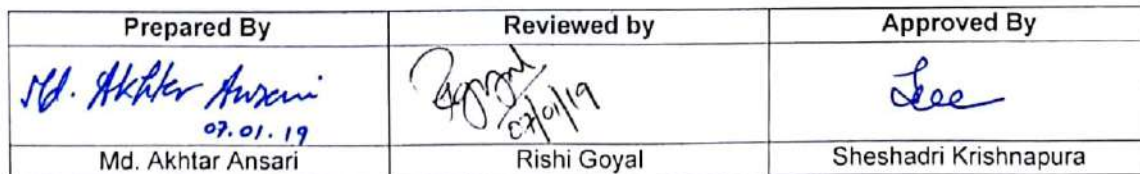 Prepared By Reviewed by Approved By
Md. Akhtar Ansari
07.01.19 07/01/19
Md. Akhtar Ansari Rishi Goyal Sheshadri Krishnapura